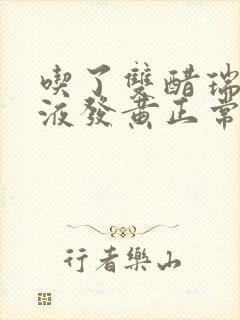 喫了雙醋瑞
液發黃正常
行者樂山